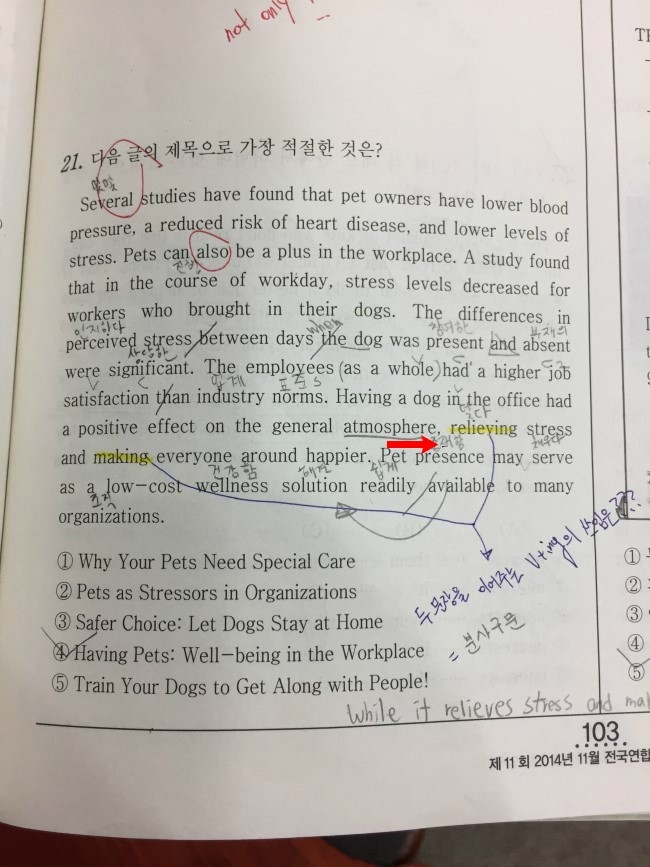 not only
21. 다음 글의 제목으로 가장 적절한 것은?
몇몇
Several studies have found that pet owners have lower blood
pressure, a reduced risk of heart disease, and lower levels of
stress. Pets can also be a plus in the workplace. A study found
that in the course of workday, stress levels decreased for
workers who brought in their dogs. The differences in
인지하다 when 참여한 부재의
perceived stress between days the dog was present and absent
상당한
were significant. The employees (as a whole) had a higher job
업계 표준s
satisfaction than industry norms. Having a dog in the office had
덜다
a positive effect on the general atmosphere, relieving stress
존재함 채우다
and making everyone around happier. Pet presence may serve
건강함 해결 쉽게
as a low-cost wellness solution readily available to many
조직
organizations.
① Why Your Pets Need Special Care
② Pets as Stressors in Organizations
③ Safer Choice: Let Dogs Stay at Home
④ Having Pets: Well-being in the Workplace
⑤ Train Your Dogs to Get Along with People!
두 문장을 이어주는 V+ing의 쓰임은???
= 분사구문
While it relieves stress and mak
103
제 11 회 2014년 11월 전국연합
TH
①
②
③
④
⑤